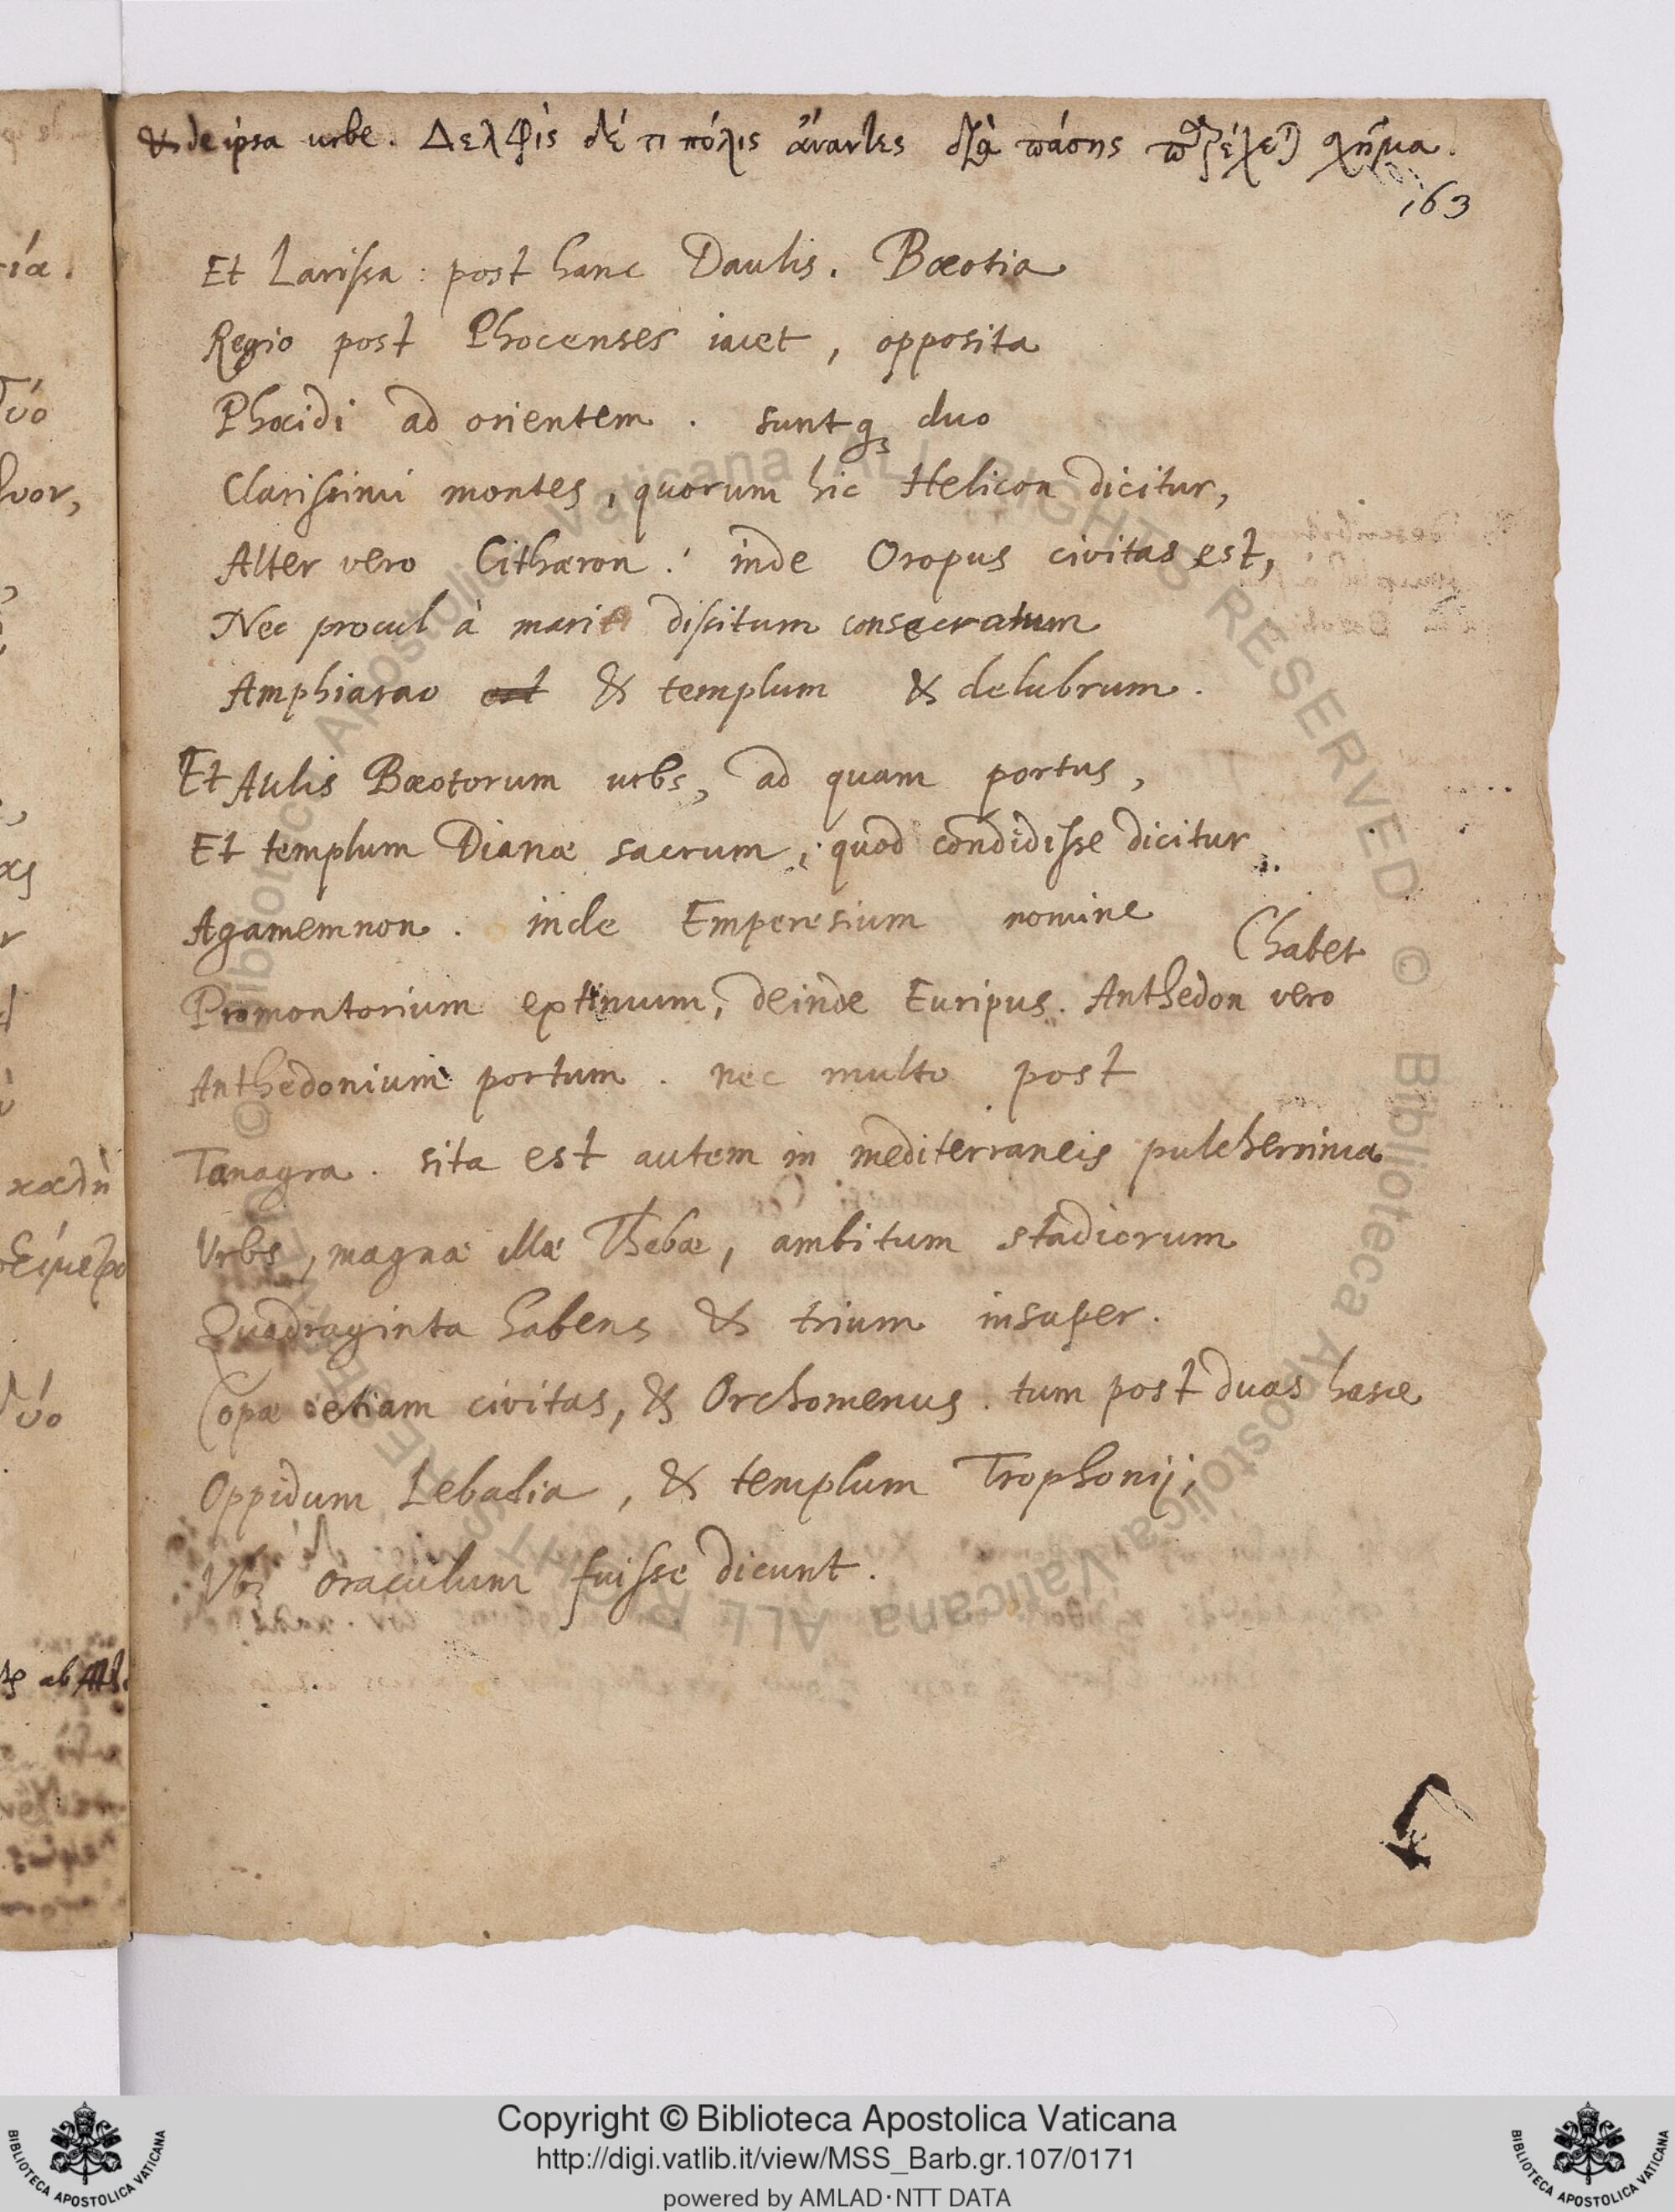 & de ipsa urbe. Δελφὶς δέ τι πόλις ἄναντες διὰ πάσης παρέχεται χῆμα.
163
Et Larissa : post hanc Daulis. Bœotia
Regio post Phocenses iacet, opposita
Phocidi ad orientem. suntq; duo
Clarissimi montes, quorum hic Helicon dicitur,
Alter vero Cithæron : inde Oropus civitas est,
Nec procul à mari discitum consecratum
Amphiarao est & templum & delubrum.
Et Aulis Bœotorum urbs, ad quam portus,
Et templum Dianæ sacrum, quod condidisse dicitur
Agamemnon. inde Emperesium nomine
(habet
Promontorium extimum, deinde Euripus. Anthedon vero
Anthedonium portum. nec multo post
Tanagra. sita est autem in mediterraneis pulcherrima
Urbs, magnæ illæ Thebæ, ambitum stadiorum
Quadraginta habens & trium insuper.
Copæ etiam civitas, & Orchomenus. tum post duas hasce
Oppidum Lebadia, & templum Trophonij,
Vbi oraculum fuisse dicunt.
ία.
ύο
υον,
καδὴ
ύο
ab
© Biblioteca Apostolica Vaticana ALL RIGHTS RESERVED © Biblioteca Apostolica Vaticana ALL RIGHTS RESERVED
Copyright © Biblioteca Apostolica Vaticana
http://digi.vatlib.it/view/MSS_Barb.gr.107/0171
powered by AMLAD·NTT DATA
BIBLIOTECA APOSTOLICA VATICANA
BIBLIOTECA APOSTOLICA VATICANA